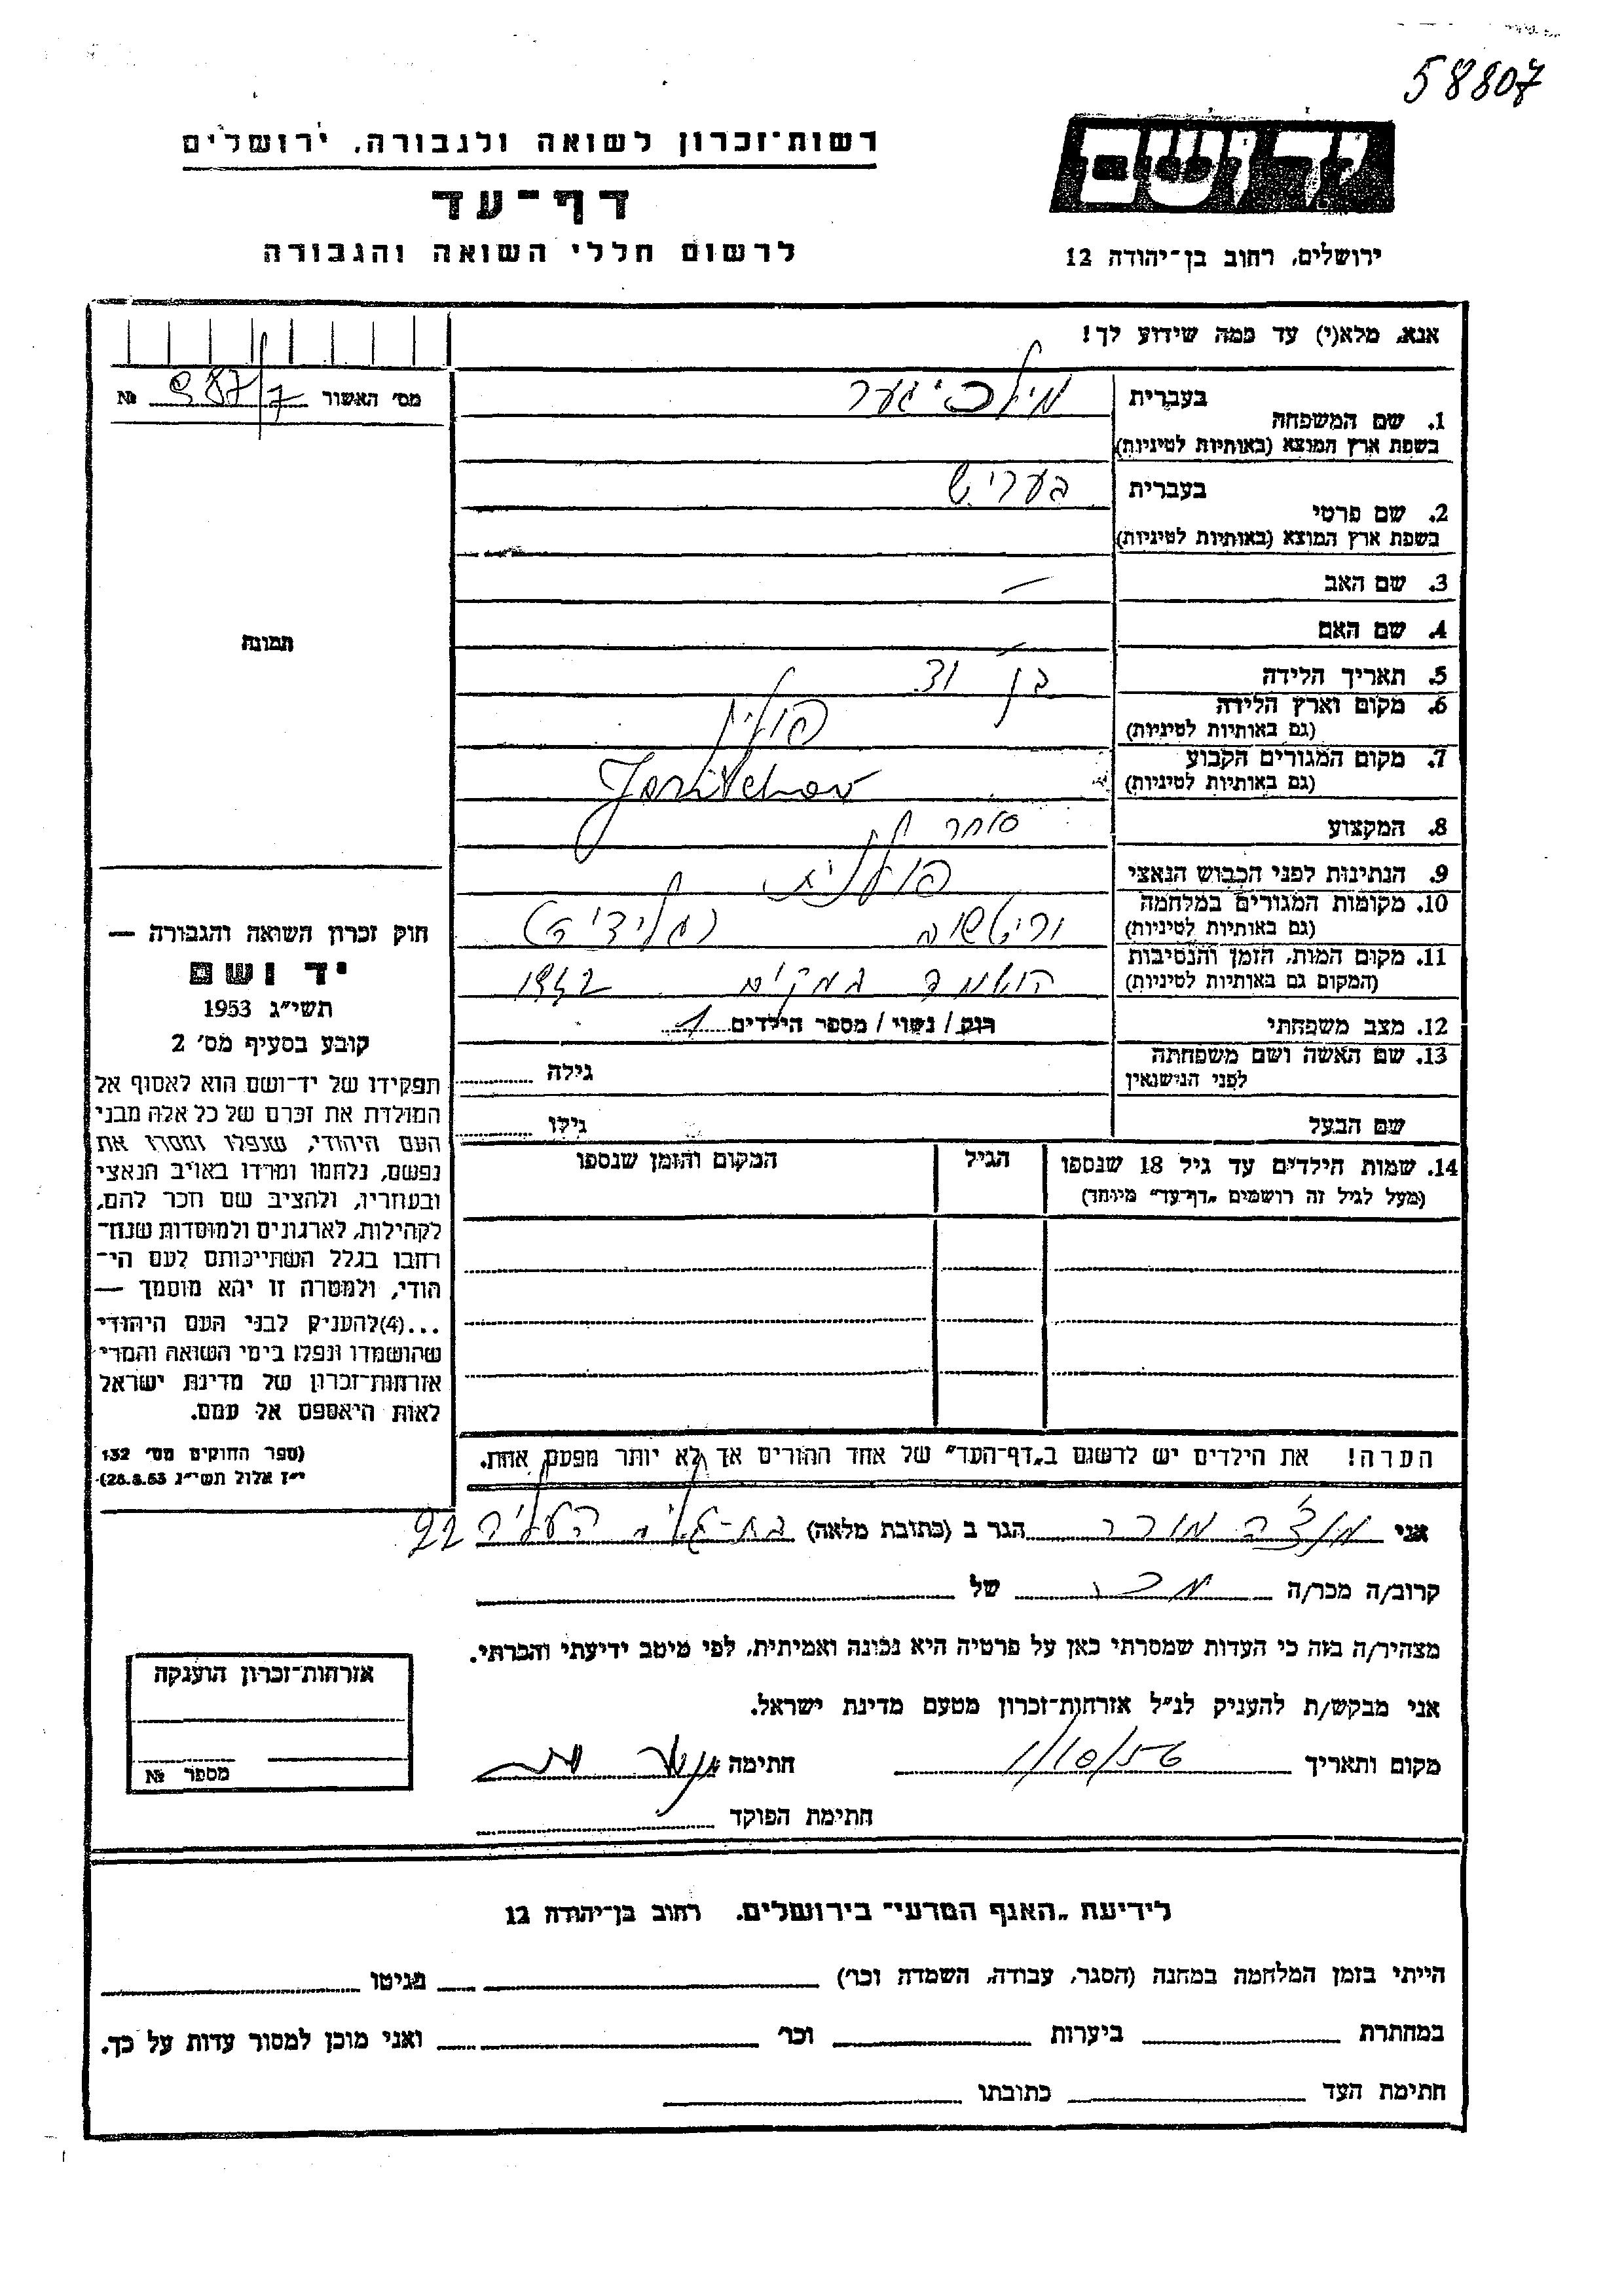 58807
יד ושם
רשות־זכרון לשואה ולגבורה, ירושלים
דף־עד
לרשום חללי השואה והגבורה
ירושלים, רחוב בן־יהודה 12
אנא, מלא(י) עד כמה שידוע לך!
מס' האשור 987/7 №
1. שם המשפחה
בעברית
בשפת ארץ המוצא (באותיות לטיניות)
2. שם פרטי
בעברית בעריש
בשפת ארץ המוצא (באותיות לטיניות)
3. שם האב —
4. שם האם —
5. תאריך הלידה בן
6. מקום וארץ הלידה פולין
(גם באותיות לטיניות)
7. מקום המגורים הקבוע
(גם באותיות לטיניות)
8. המקצוע סוחר
9. הנתינות לפני הכבוש הנאצי פולנית
10. מקומות המגורים במלחמה
(גם באותיות לטיניות)
11. מקום המות, הזמן והנסיבות 1942
(המקום גם באותיות לטיניות)
12. מצב משפחתי רווק / נשוי / מספר הילדים 1
13. שם האשה ושם משפחתה גילה
לפני הנישואין
שם הבעל גילו
14. שמות הילדים עד גיל 18 שנספו הגיל המקום והזמן שנספו
(מעל לגיל זה רושמים „דף־עד" מיוחד)
הערה! את הילדים יש לרשום ב„דף־העד" של אחד ההורים אך לא יותר מפעם אחת.
תמונה
חוק זכרון השואה והגבורה —
יד ושם
תשי״ג 1953
קובע בסעיף מס' 2
תפקידו של יד־ושם הוא לאסוף אל
המולדת את זכרם של כל אלה מבני
העם היהודי, שנפלו ומסרו את
נפשם, נלחמו ומרדו באויב הנאצי
ובעוזריו, ולהציב שם וזכר להם,
לקהילות, לארגונים ולמוסדות שנח־
רחבו בגלל השתייכותם לעם הי־
הודי, ולמטרה זו יהא מוסמך —
...(4) להעניק לבני העם היהודי
שהושמדו ונפלו בימי השואה והמרי
אזרחות־זכרון של מדינת ישראל
לאות היאספם אל עמם.
(ספר החוקים מס' 132
י״ז אלול תשי״ג 28.8.53)
אני הגר ב (כתובת מלאה) 22
קרוב/ה מכר/ה מכר של
מצהיר/ה בזה כי העדות שמסרתי כאן על פרטיה היא נכונה ואמיתית, לפי מיטב ידיעתי והכרתי.
אני מבקש/ת להעניק לנ״ל אזרחות־זכרון מטעם מדינת ישראל.
מקום ותאריך 1/10/56 חתימה
חתימת הפוקד
אזרחות־זכרון הוענקה
מספר №
לידיעת „האגף המדעי" בירושלים, רחוב בן־יהודה 12
הייתי בזמן המלחמה במחנה (הסגר, עבודה, השמדה וכו') בגיטו
במחתרת ביערות וכו' ואני מוכן למסור עדות על כך.
חתימת העד כתובתו